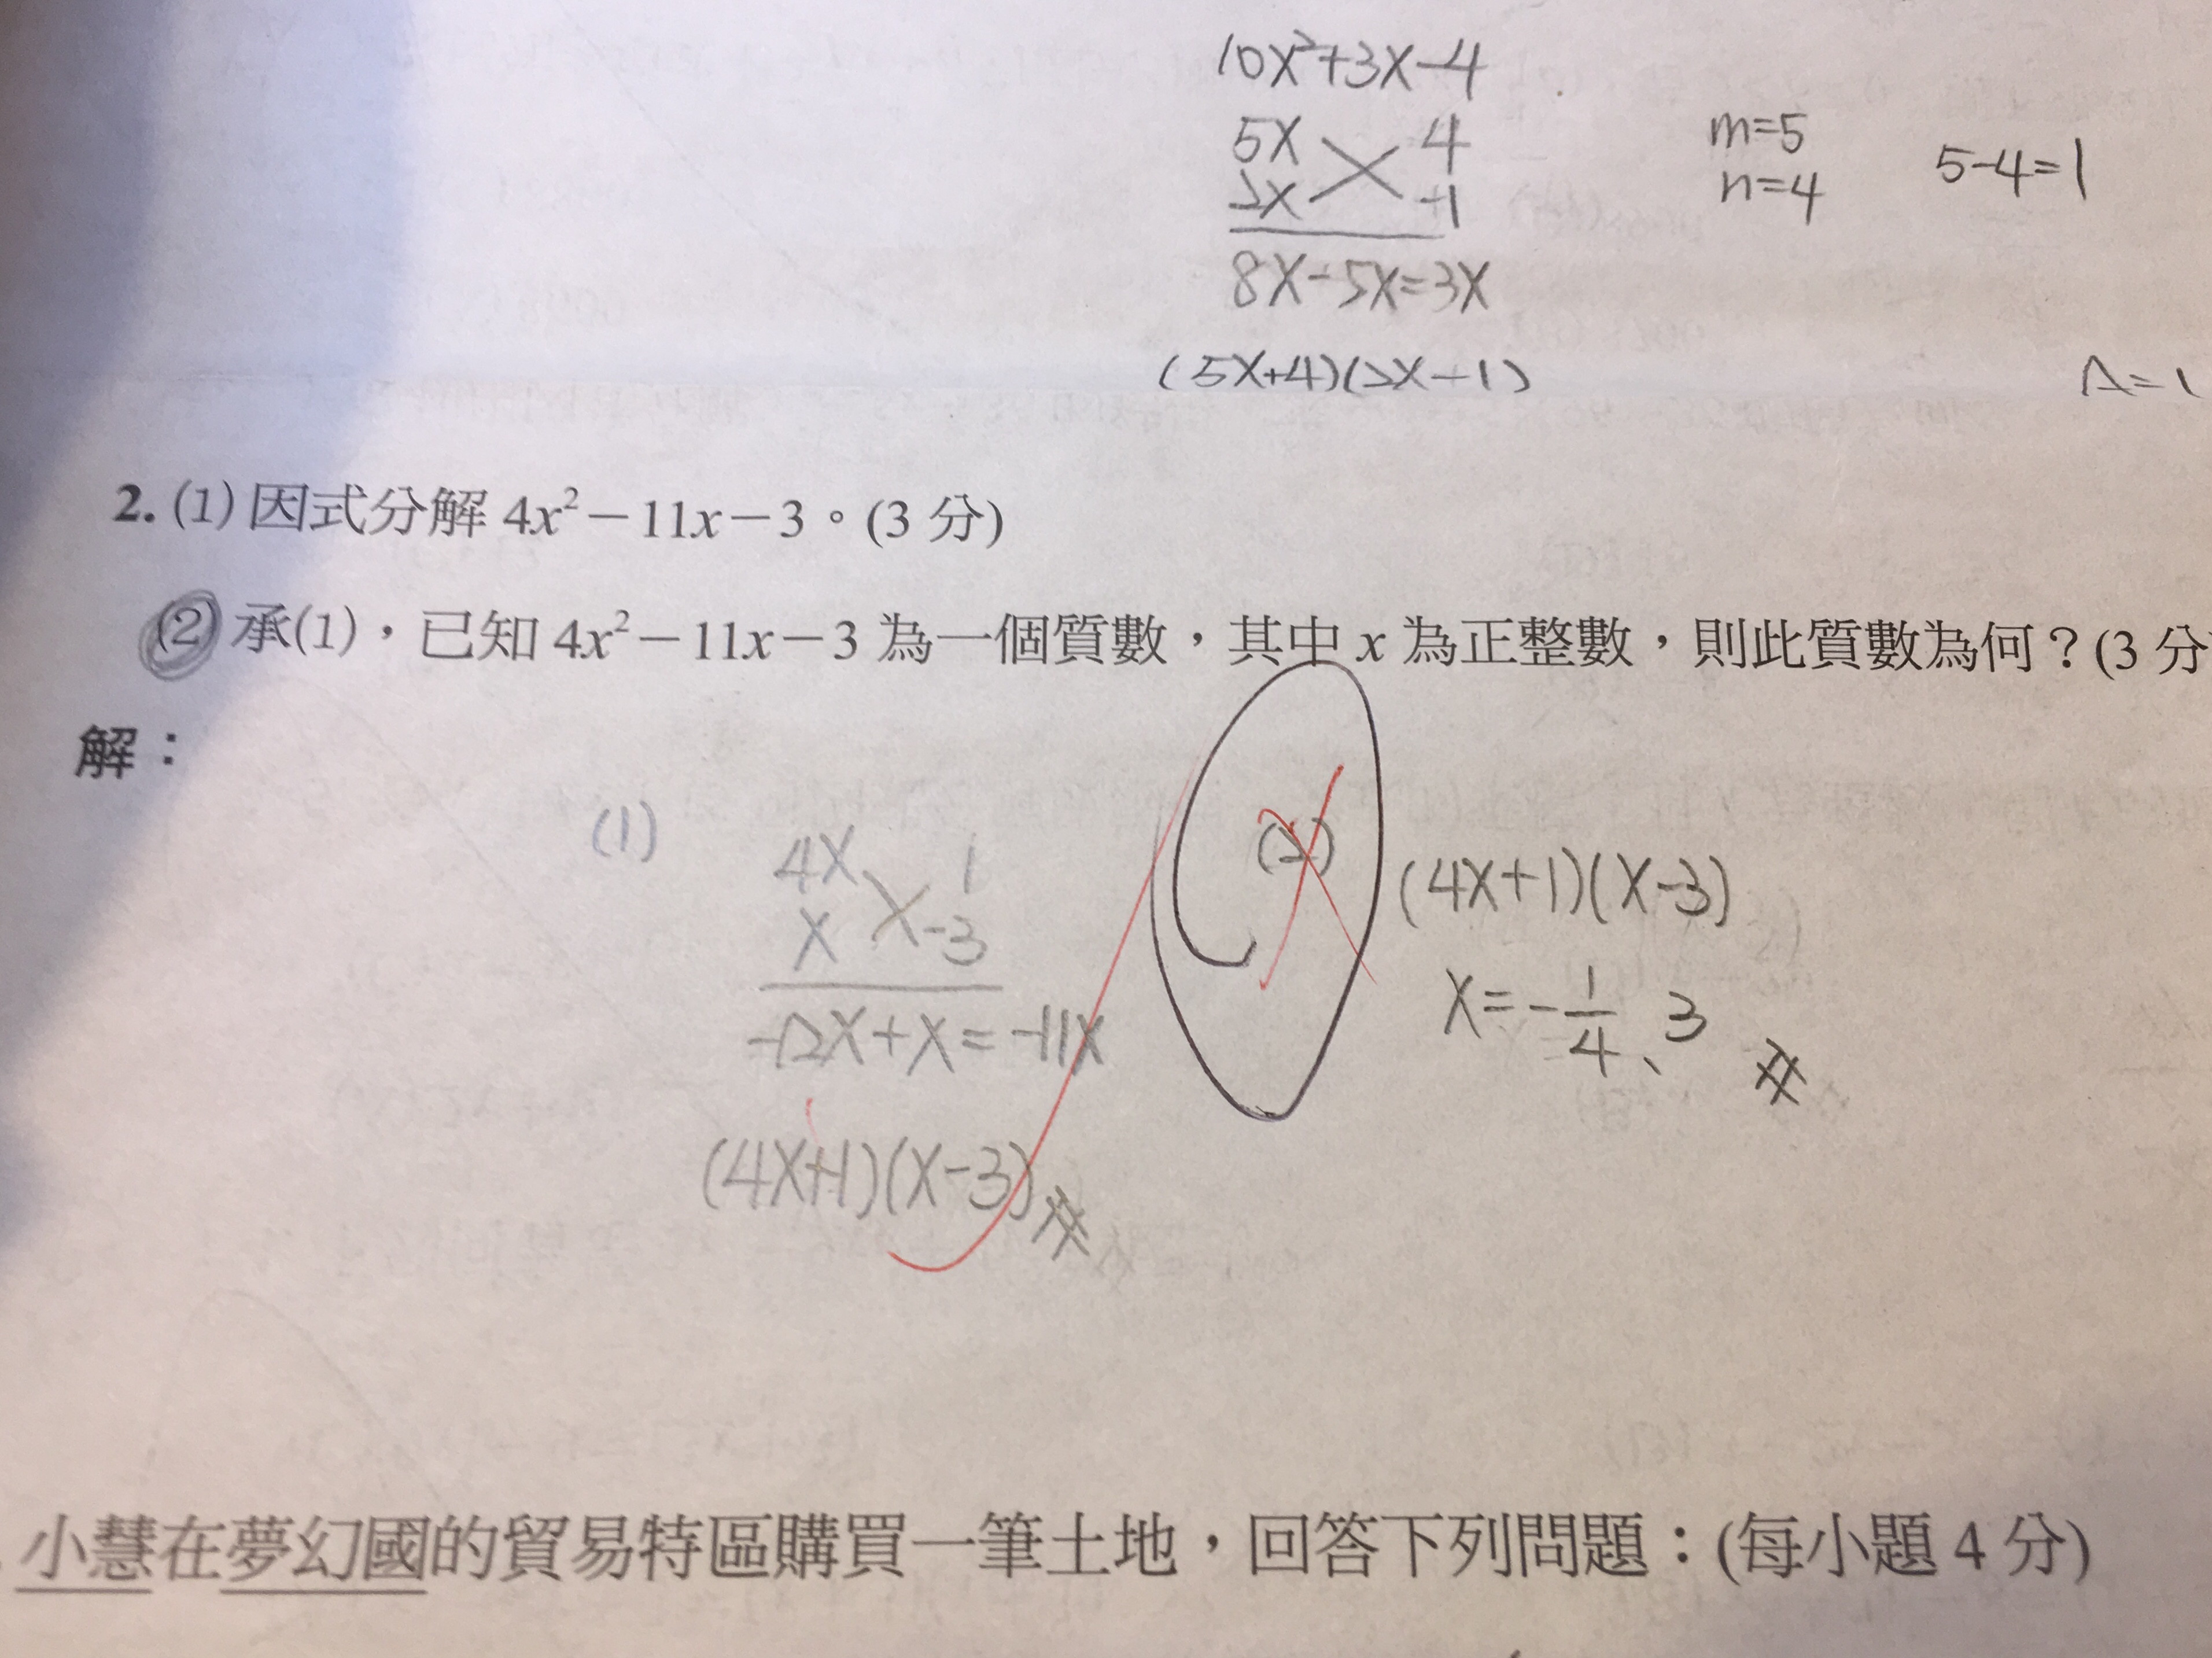 10x²+3x-4
5x 4
2x -1
8x-5x=3x
(5x+4)(2x-1)
m=5
n=4
5-4=1
A=1
2. (1) 因式分解 4x²－11x－3。(3 分)
(2) 承(1)，已知 4x²－11x－3 為一個質數，其中 x 為正整數，則此質數為何？(3 分
解：
(1)
4x 1
x -3
-12x+x=-11x
(4x+1)(x-3)#
(2)
(4x+1)(x-3)
x=-1/4、3 #
小慧在夢幻國的貿易特區購買一筆土地，回答下列問題：(每小題 4 分)